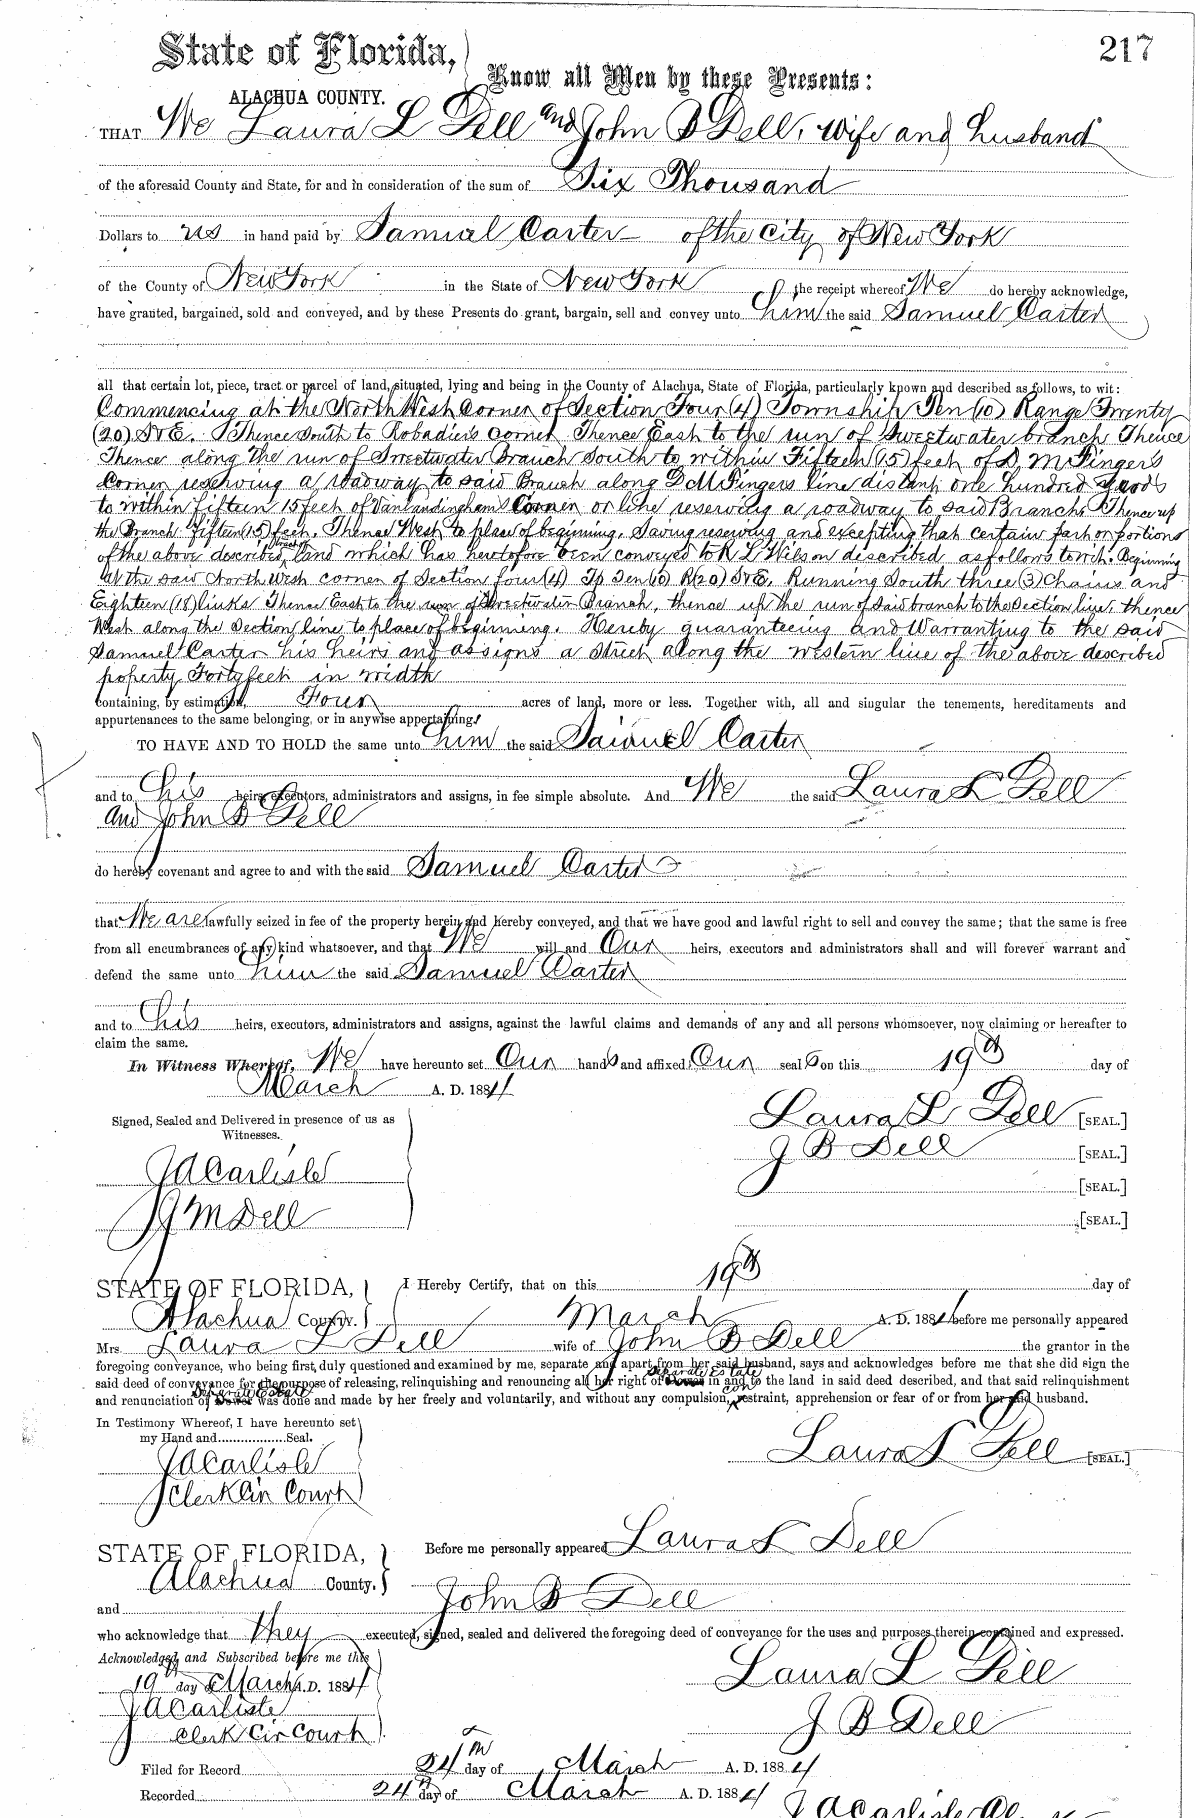 217
State of Florida,
Know all Men by these Presents:
ALACHUA COUNTY.
THAT We Laura L Dell and John B Dell, wife and husband
of the aforesaid County and State, for and in consideration of the sum of Six Thousand
Dollars to us in hand paid by Samuel Carter of the City of New York
of the County of New York in the State of New York the receipt whereof We do hereby acknowledge,
have granted, bargained, sold and conveyed, and by these Presents do grant, bargain, sell and convey unto him the said Samuel Carter
all that certain lot, piece, tract or parcel of land, situated, lying and being in the County of Alachua, State of Florida, particularly known and described as follows, to wit:
Commencing at the North West Corner of Section Four (4) Township Ten (10) Range Twenty
(20) S & E. Thence South to Robadier's corner Thence East to the run of Sweetwater branch Thence
Thence along the run of Sweetwater Branch South to within Fifteen (15) feet of D M Finger's
Corner reserving a roadway to said Branch along D M Fingers line distant one hundred yards
to within fifteen 15 feet of Vanlandingham's Corner or line reserving a roadway to said Branch Thence up
the Branch fifteen (15) feet. Thence West to place of beginning. Saving reserving and excepting that certain part or portions
of the above described land which has heretofore been conveyed to R L Wilson described as follows to wit. Beginning
at the said North West corner of Section four (4) Tp Ten (10) R (20) S & E. Running South three (3) Chains and
Eighteen (18) links Thence East to the run of Sweetwater Branch, thence up the run of said branch to the Section line, thence
West along the Section line to place of beginning. Hereby guaranteeing and Warranting to the said
Samuel Carter his heirs and assigns a Street along the western line of the above described
property Forty feet in width
containing, by estimation, Four acres of land, more or less. Together with, all and singular the tenements, hereditaments and
appurtenances to the same belonging, or in anywise appertaining.
TO HAVE AND TO HOLD the same unto him the said Samuel Carter
and to his heirs, executors, administrators and assigns, in fee simple absolute. And We the said Laura L Dell
and John B Dell
do hereby covenant and agree to and with the said Samuel Carter
that We are lawfully seized in fee of the property herein and hereby conveyed, and that we have good and lawful right to sell and convey the same; that the same is free
from all encumbrances of any kind whatsoever, and that We will and Our heirs, executors and administrators shall and will forever warrant and
defend the same unto him the said Samuel Carter
and to his heirs, executors, administrators and assigns, against the lawful claims and demands of any and all persons whomsoever, now claiming or hereafter to
claim the same.
In Witness Whereof, We have hereunto set Our hands and affixed Our seals on this 19th day of
March A. D. 1884
Signed, Sealed and Delivered in presence of us as
Witnesses.
Laura L Dell [SEAL.]
J B Dell [SEAL.]
J A Carlisle
[SEAL.]
J M Dell
[SEAL.]
STATE OF FLORIDA, I Hereby Certify, that on this 19th day of
Alachua County. March A. D. 1884 before me personally appeared
Mrs. Laura L Dell wife of John B Dell the grantor in the
foregoing conveyance, who being first duly questioned and examined by me, separate and apart from her said husband, says and acknowledges before me that she did sign the
Separate Estate
said deed of conveyance for the purpose of releasing, relinquishing and renouncing all her right of Dower in and to the land in said deed described, and that said relinquishment
Separate Estate con
and renunciation of Dower was done and made by her freely and voluntarily, and without any compulsion, restraint, apprehension or fear of or from her said husband.
In Testimony Whereof, I have hereunto set
my Hand and Seal.
Laura L Dell [SEAL.]
J A Carlisle
Clerk Cir Court
STATE OF FLORIDA, Before me personally appeared Laura L Dell
Alachua County.
and John B Dell
who acknowledge that they executed, signed, sealed and delivered the foregoing deed of conveyance for the uses and purposes therein contained and expressed.
Acknowledged and Subscribed before me this
19th day of March A.D. 1884
Laura L Dell
J A Carlisle
Clerk Cir Court
J B Dell
Filed for Record 24th day of March A. D. 1884
Recorded 24th day of March A. D. 1884
J A Carlisle